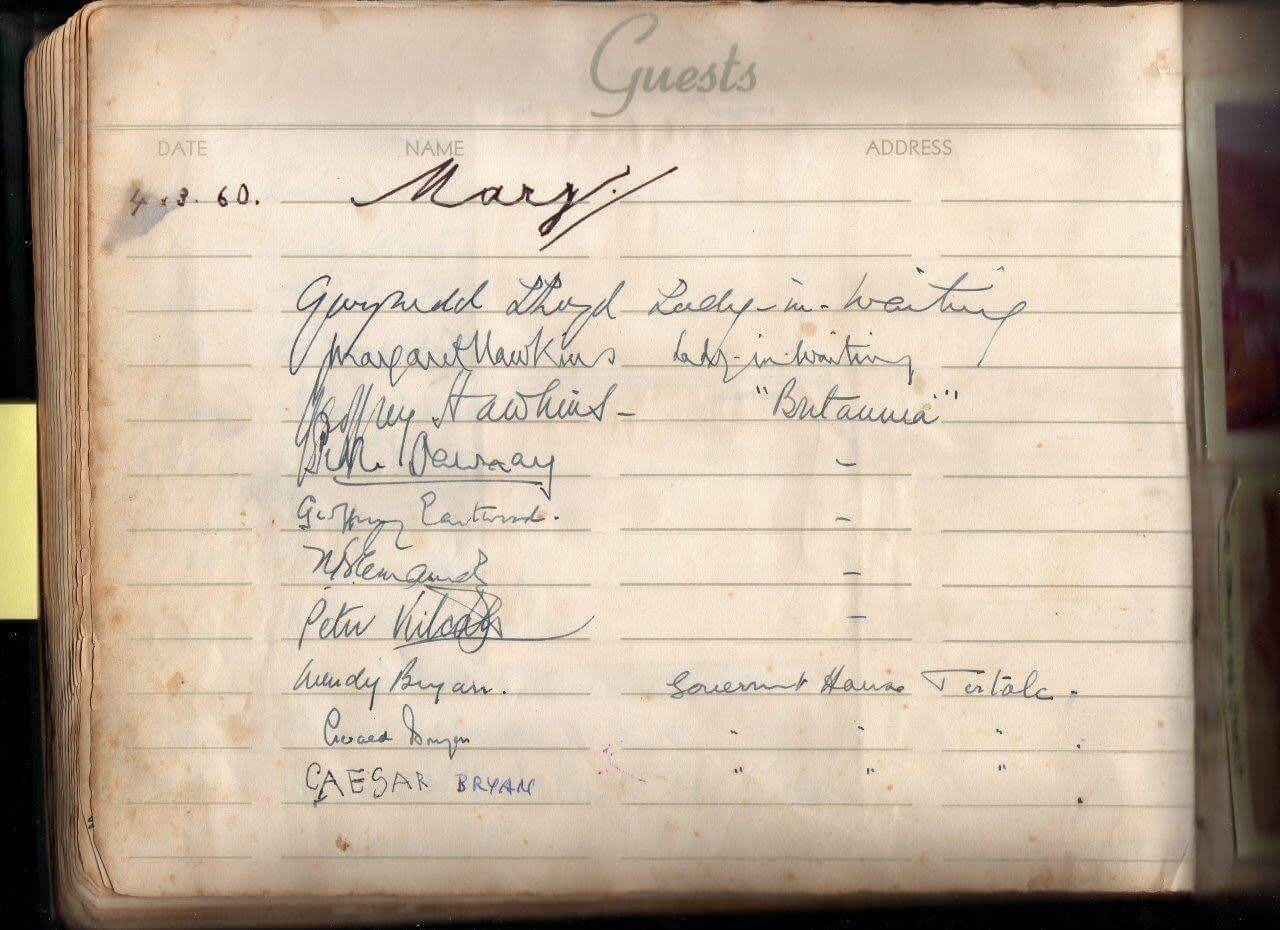 Guests
DATE NAME ADDRESS
4.3.60. Mary
Gwynedd Lloyd Lady-in-Waiting
Margaret Hawkins Lady-in-Waiting
Geoffrey Hawkins - "Britannia"
Dawnay -
Geoffrey Eastwood. -
-
Peter -
Wendy Bryan. Government House Tortola.
Bryan " " " .
CAESAR BRYAN " " " .